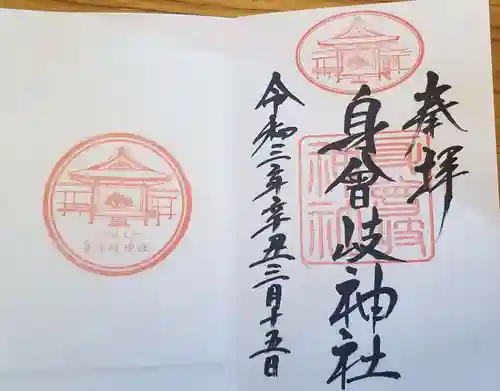 奉拝
身曾岐神社
令和三年辛丑三月十五日
身曾岐神社